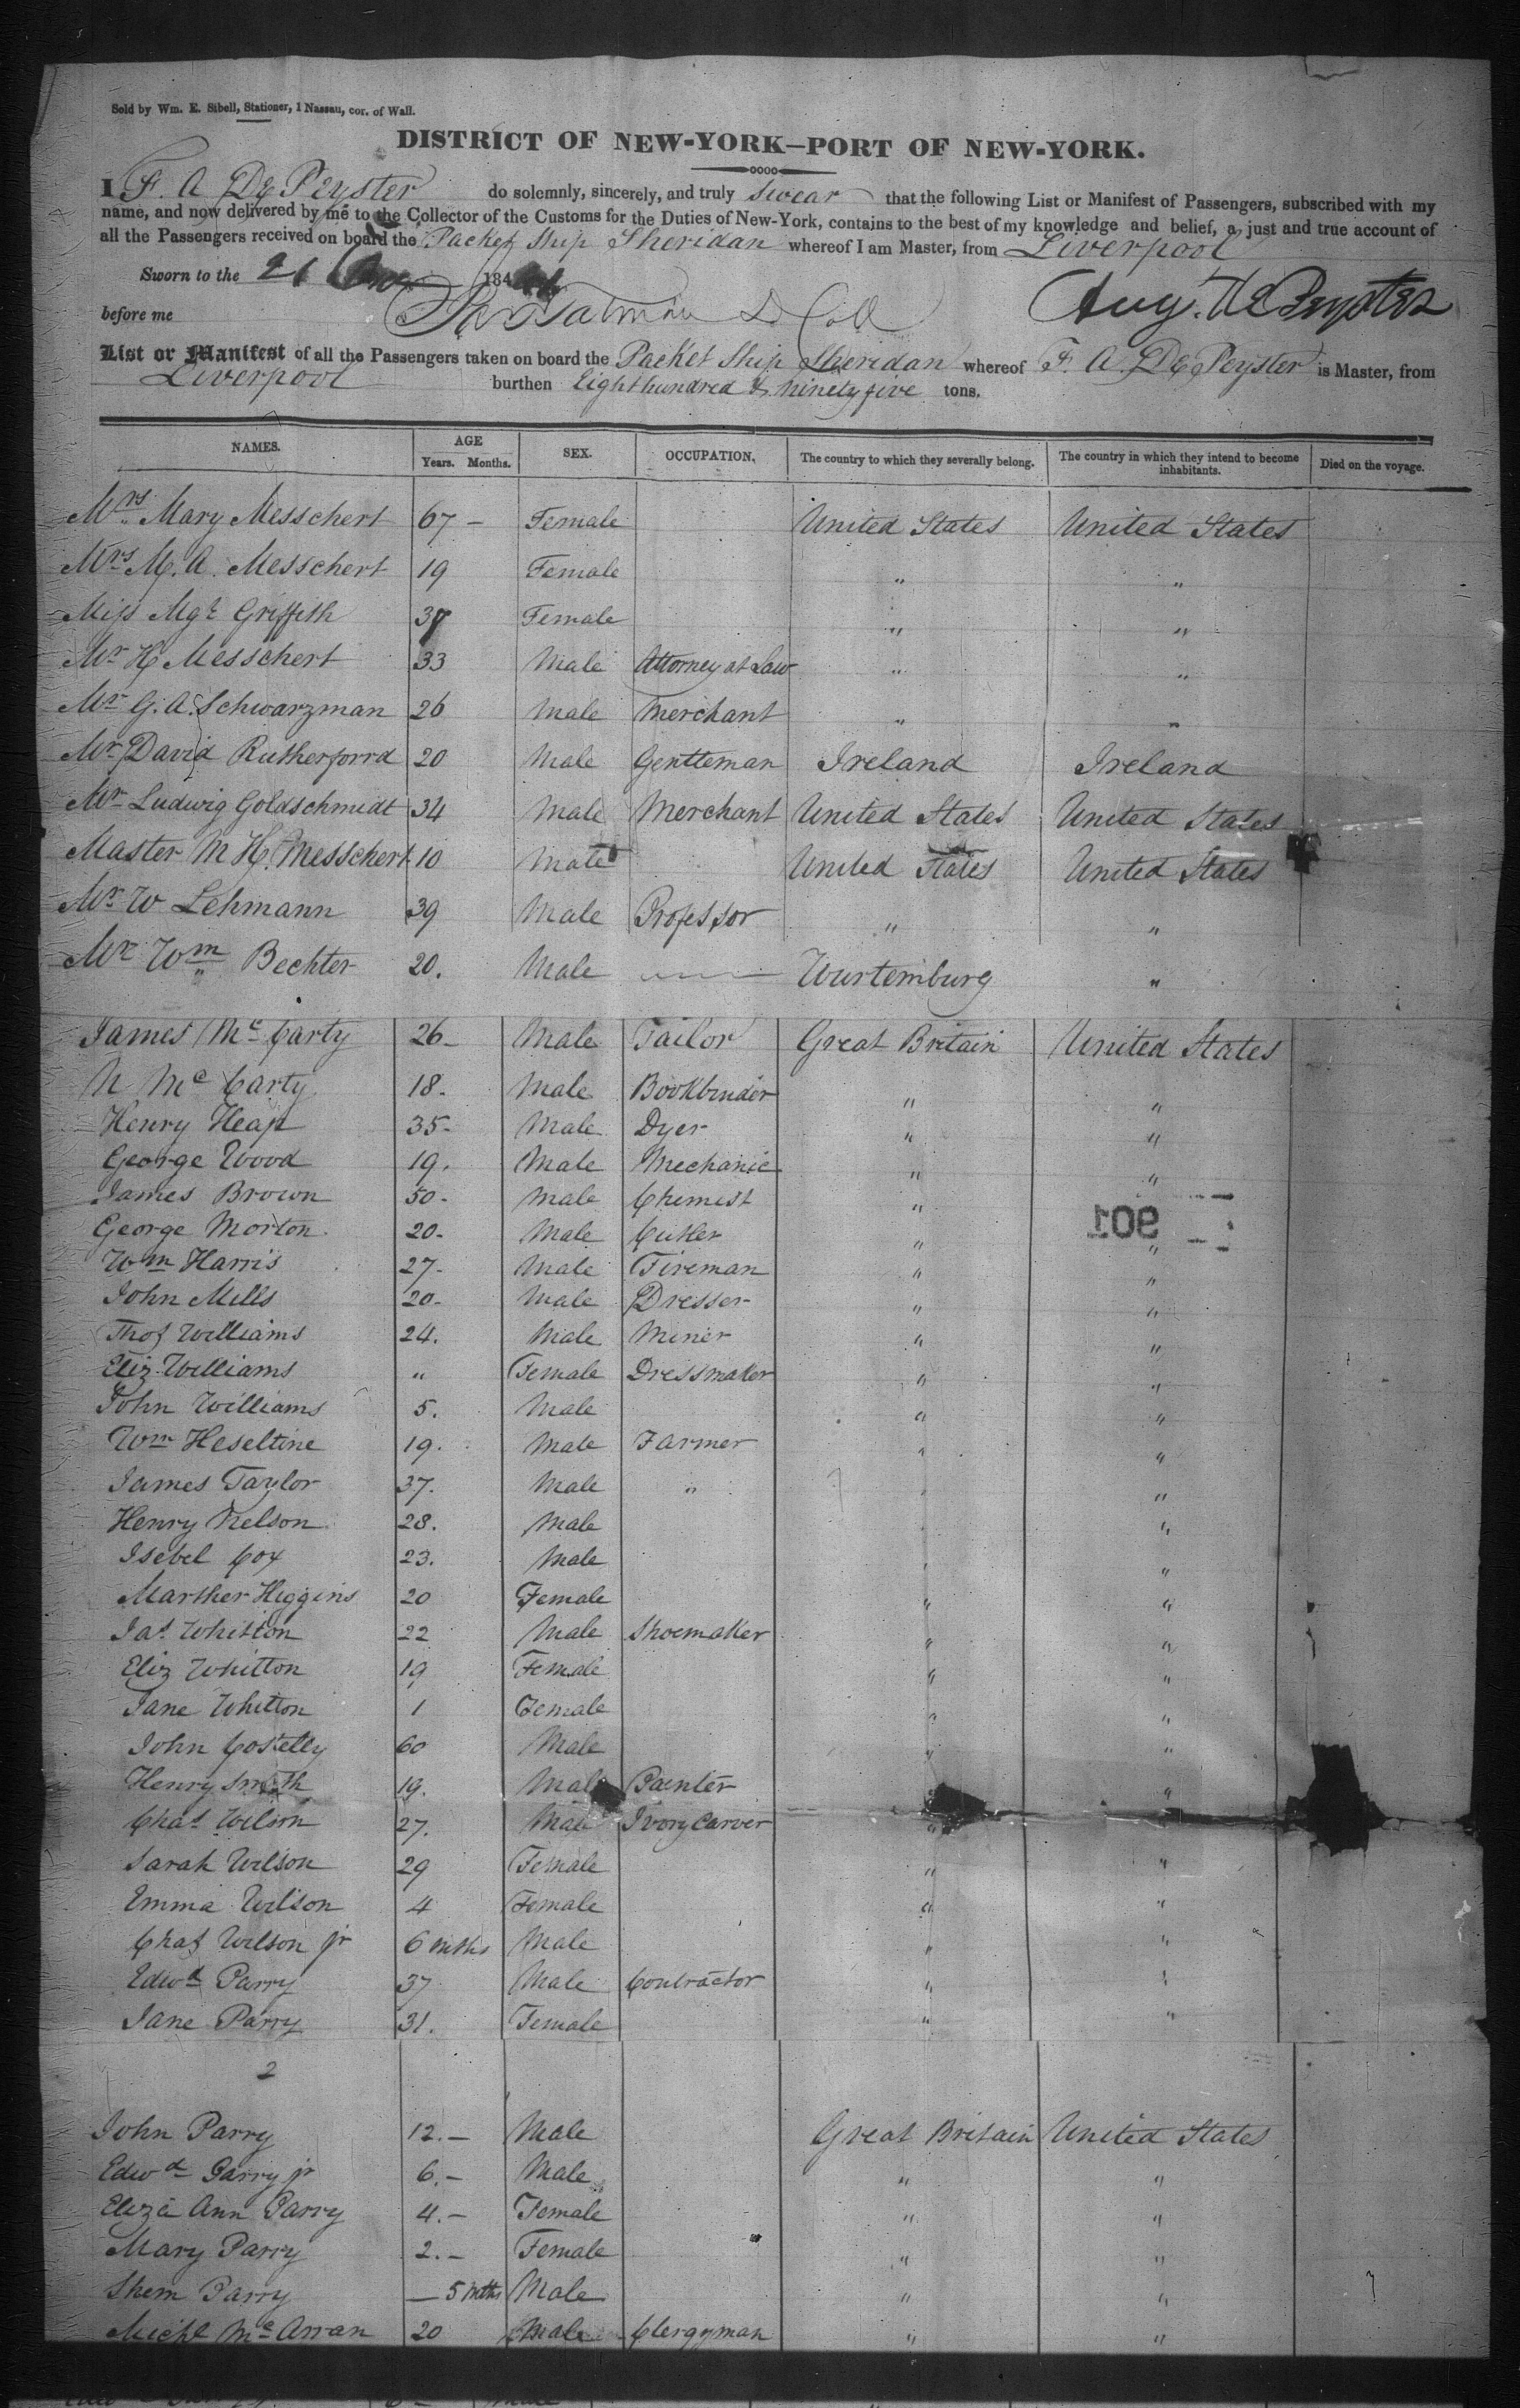 Sold by Wm. E. Sibell, Stationer, 1 Nassau, cor. of Wall.
DISTRICT OF NEW-YORK—PORT OF NEW-YORK.
I F. A DE Peyster do solemnly, sincerely, and truly swear that the following List or Manifest of Passengers, subscribed with my
name, and now delivered by me to the Collector of the Customs for the Duties of New-York, contains to the best of my knowledge and belief, a just and true account of
all the Passengers received on board the Packet Ship Sheridan whereof I am Master, from Liverpool
Sworn to the 21 184
before me Aug. De Peyster
List or Manifest of all the Passengers taken on board the Packet Ship Sheridan whereof F. A. DE Peyster is Master, from
Liverpool burthen Eight hundred & ninety five tons.
NAMES. AGE Years. Months. SEX. OCCUPATION. The country to which they severally belong. The country in which they intend to become inhabitants. Died on the voyage.
Mrs. Mary Messchert 67 – Female United States United States
Mrs M. A. Messchert 19 Female " "
Miss Mgt Griffith 37 Female " "
Mr H Messchert 33 Male Attorney at Law " "
Mr G. A. Schwarzman 26 Male Merchant " "
Mr David Rutherforrd 20 Male Gentleman Ireland Ireland
Mr Ludwig Goldschmidt 34 Male Merchant United States United States
Master M H. Messchert 10 Male United States United States
Mr W Lehmann 39 Male Professor " "
Mr Wm Bechter 20. Male — Wurtemburg "
James Mc Carty 26– Male Tailor Great Britain United States
N Mc Carty 18. Male Bookbinder " "
Henry Heap 35– Male Dyer " "
George Wood 19. Male Mechanic " "
James Brown 50– Male Chemist " "
George Morton. 20– Male Cutler " "
901
Wm Harris 27– Male Fireman " "
John Mills 20– Male Dresser " "
Thos Williams 24. Male Miner " "
Eliz Williams " Female Dressmaker " "
John Williams 5. Male " "
Wm Heseltine 19. Male Farmer " "
James Taylor 37. Male " " "
Henry Nelson 28. Male " "
Isebel Cox 23. Male " "
Marther Higgins 20 Female " "
Jas Whitton 22 Male Shoemaker " "
Eliz Whitton 19 Female " "
Jane Whitton 1 Female " "
John Costelly 60 Male " "
Henry Smith 19. Male Painter " "
Chas Wilson 27. Male Ivory Carver "
Sarah Wilson 29 Female " "
Emma Wilson 4 Female " "
Chas Wilson jr 6 mths Male " "
Edwd Parry 37 Male Contractor " "
Jane Parry 31. Female " "
2
John Parry 12.– Male Great Britain United States
Edwd Parry jr 6.– Male " "
Eliza Ann Parry 4.– Female " "
Mary Parry 2.– Female " "
Shem Parry — 5 mths Male " "
Michl Mc Arran 20 Male Clergyman " "